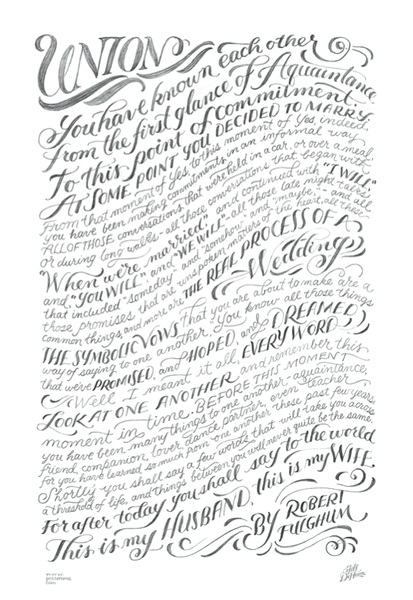 UNION
You have known each other
from the first glance of Aquaintance
To this point of commitment.
AT SOME POINT YOU DECIDED TO MARRY.
From that moment of Yes, to this moment of Yes, indeed,
you have been making commitments in an informal way.
ALL OF THOSE conversations that were held in a car, or over a meal,
or during long walks - all those conversations that began with,
"When we're married", and continued with "I WILL"
and "YOU WILL" and "WE WILL" - all those late night talks
that included "someday" and "somehow" and "maybe" - and all
those promises that are unspoken matters of the heart. All these
common things, and more, are THE REAL PROCESS OF A
Wedding
THE SYMBOLIC VOWS that you are about to make are a
way of saying to one another, You know all those things
that we've PROMISED, and HOPED, and DREAMED
Well, I meant it all, EVERY WORD.
LOOK AT ONE ANOTHER and remember this
moment in time. BEFORE THIS MOMENT
you have been many things to one another - aquaintance,
friend, companion, lover, dance partner, even teacher
for you have learned so much from one another these past few years.
Shortly you shall say a few words that will take you across
a threshold of life, and things between you will never quite be the same.
For after today you shall say to the world
This is my HUSBAND, this is my WIFE.
BY ROBERT
FULGHUM